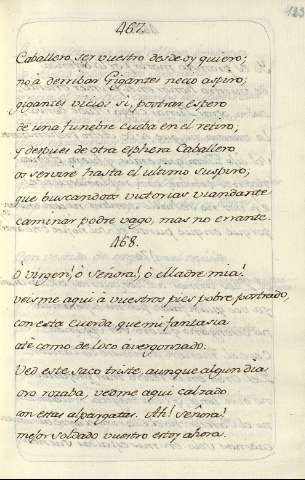 467.
Caballero ser vuestro desde oy quiero;
no à derribar Gigantes necio aspiro;
gigantes vicios si, postrar espero
de una funebre cueba en el retiro;
y despues de otra esphera Caballero
os servire hasta el ultimo suspiro;
que buscandoos victorias viandante
caminar podrè vago, mas no errante.
468.
O virgen! ò Señora! ò Madre mia!
veisme aqui à vuestros pies pobre postrado,
con esta cuerda que mi fantasia
ate como de loco avergonzado.
Ved este saco triste, aunque algun dia
oro rozaba, vedme aqui calzado
con estas alpargatas. Ah! Señora!
mejor soldado vuestro estoy ahora.